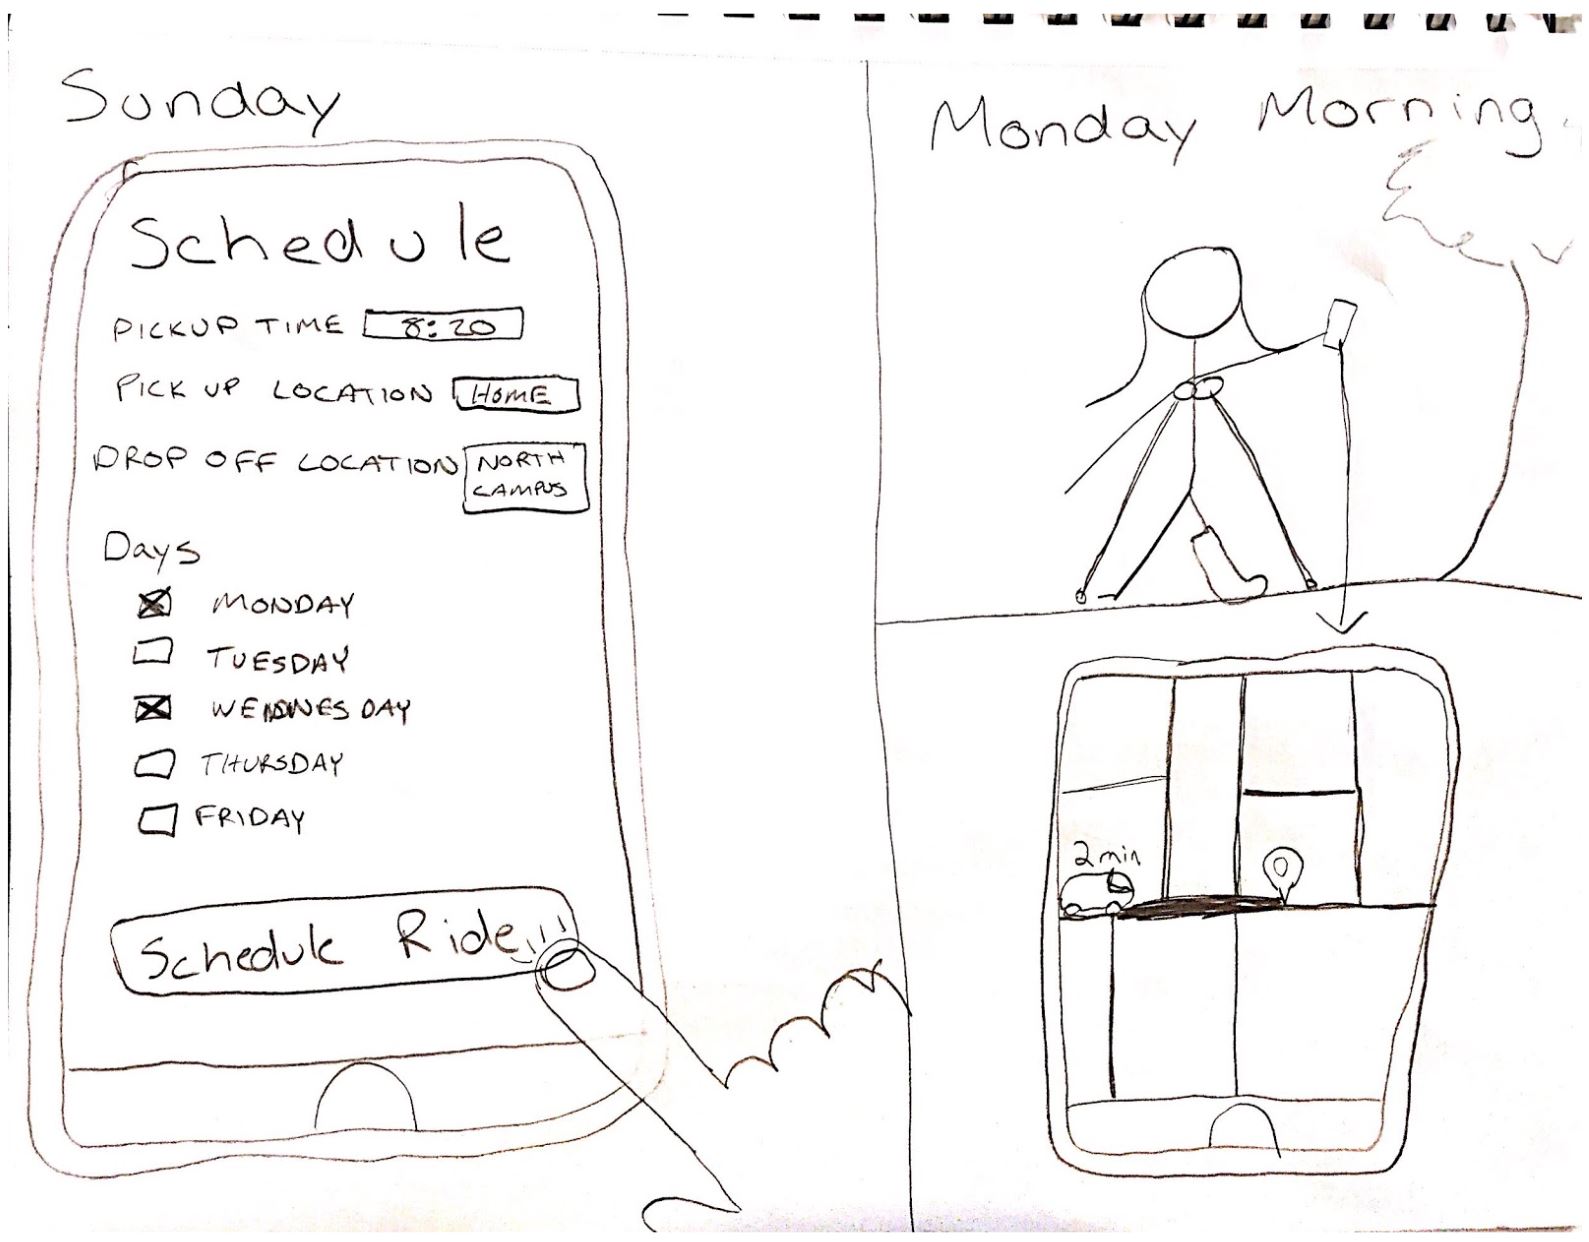 Sunday
Schedule
PICKUP TIME 8:20
PICK UP LOCATION HOME
DROP OFF LOCATION NORTH
CAMPUS
Days
MONDAY
TUESDAY
WEDNESDAY
THURSDAY
FRIDAY
Schedule Ride
Monday Morning
2 min